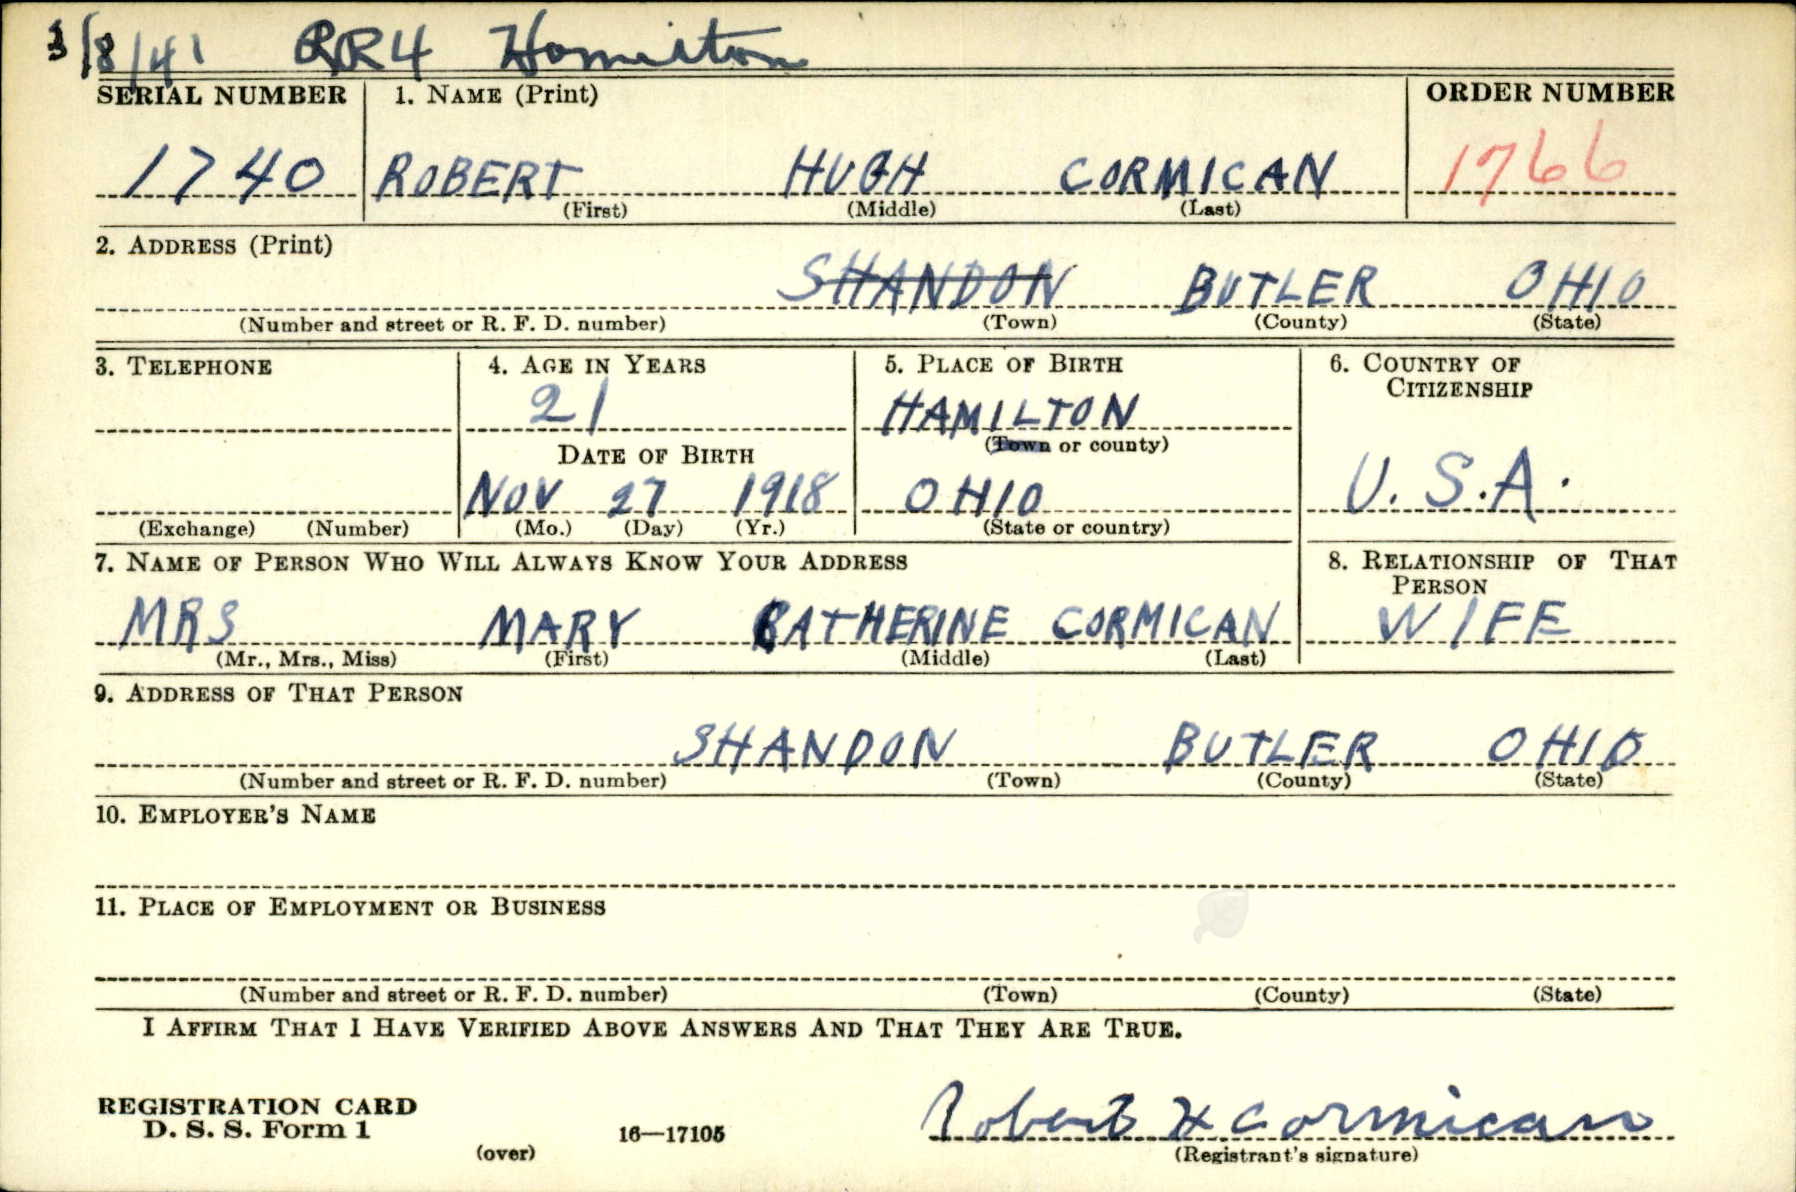 3/8/41 RR4 Hamilton
SERIAL NUMBER 1. NAME (Print) ORDER NUMBER
1740 ROBERT HUGH CORMICAN 1766
(First) (Middle) (Last)
2. ADDRESS (Print)
SHANDON BUTLER OHIO
(Number and street or R. F. D. number) (Town) (County) (State)
3. TELEPHONE 4. AGE IN YEARS 5. PLACE OF BIRTH 6. COUNTRY OF CITIZENSHIP
21 HAMILTON
(Town or county)
DATE OF BIRTH
NOV 27 1918 OHIO U.S.A.
(Exchange) (Number) (Mo.) (Day) (Yr.) (State or country)
7. NAME OF PERSON WHO WILL ALWAYS KNOW YOUR ADDRESS 8. RELATIONSHIP OF THAT PERSON
MRS MARY CATHERINE CORMICAN WIFE
(Mr., Mrs., Miss) (First) (Middle) (Last)
9. ADDRESS OF THAT PERSON
SHANDON BUTLER OHIO
(Number and street or R. F. D. number) (Town) (County) (State)
10. EMPLOYER'S NAME
11. PLACE OF EMPLOYMENT OR BUSINESS
(Number and street or R. F. D. number) (Town) (County) (State)
I AFFIRM THAT I HAVE VERIFIED ABOVE ANSWERS AND THAT THEY ARE TRUE.
REGISTRATION CARD
D. S. S. Form 1
(over) 16—17105 Robert H Cormican
(Registrant's signature)